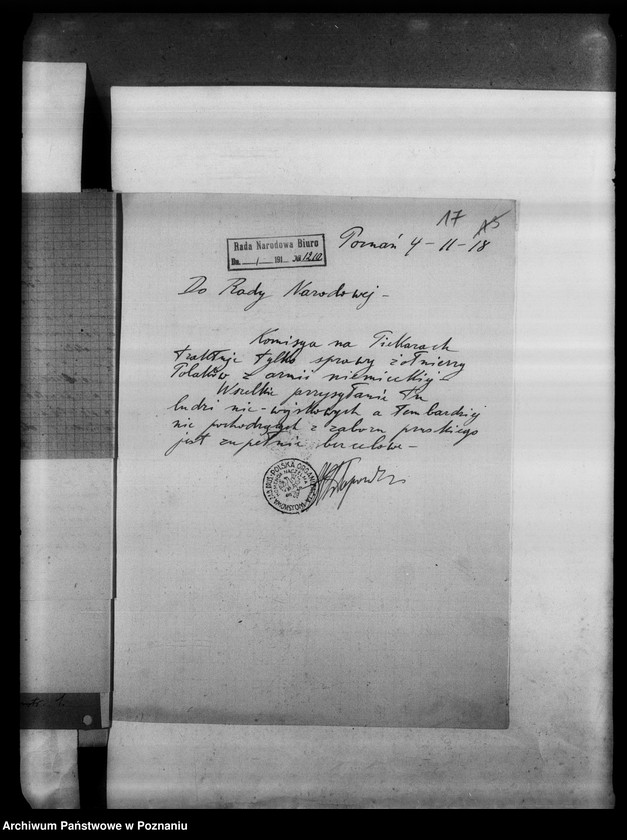 17 15
Rada Narodowa Biuro
Dn. / 191 № 1210
Poznań 4-11-18
Do Rady Narodowej -
Komisya na Piekarach
traktuje tylko sprawy żołnierzy
Polaków z armii niemieckiej -
Wszelkie przysyłanie tu
ludzi nie-wojskowych a tembardziej
nie pochodzących z zaboru pruskiego
jest zupełnie bezcelowe -
POLSKA ORGANIZACJA WOJSKOWA
KOMENDA NACZELNA
Archiwum Państwowe w Poznaniu